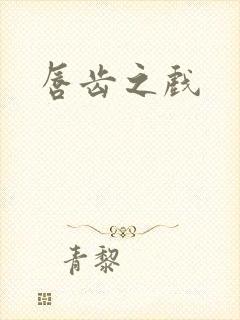 唇齿之戏
青黎